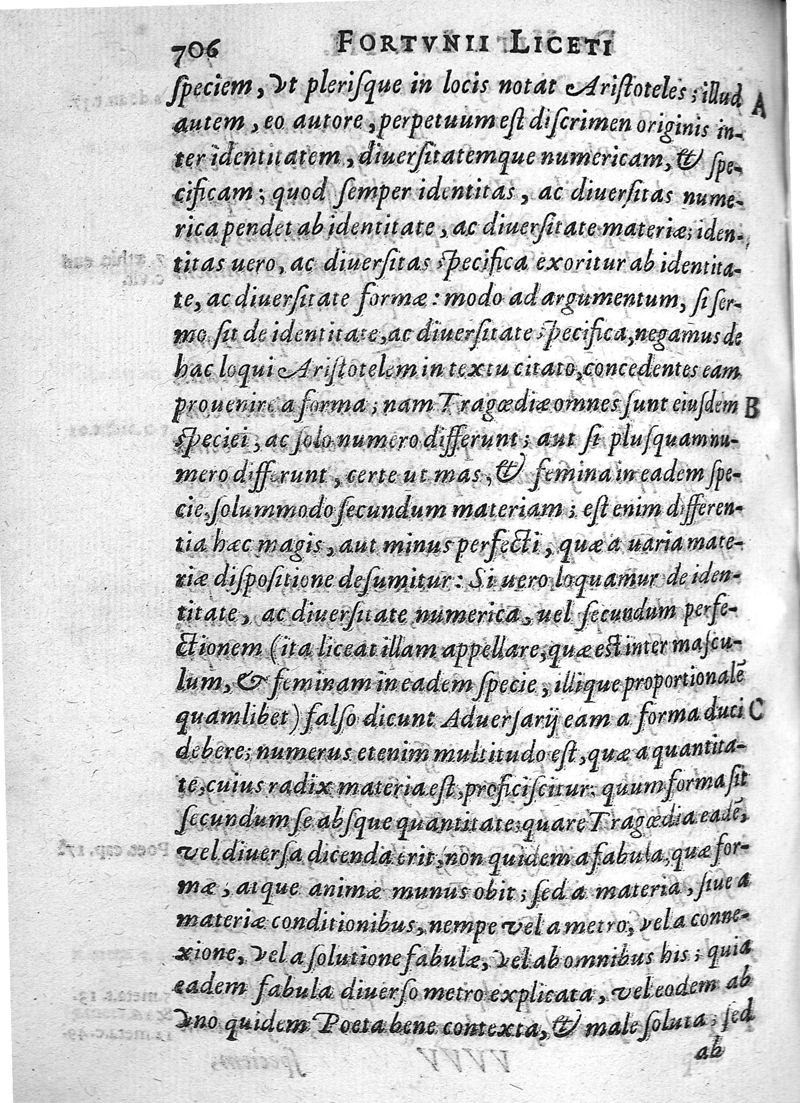 706 FORTVNII LICETI
ſpeciem, vt pleriſque in locis notat Ariſtoteles; illud A
autem, eo autore, perpetuum eſt diſcrimen originis in-
ter identitatem, diuerſitatemque numericam, & ſpe-
cificam; quod ſemper identitas, ac diuerſitas nume-
rica pendet ab identitate, ac diuerſitate materiæ; iden-
titas uero, ac diuerſitas ſpecifica exoritur ab identita-
te, ac diuerſitate formæ: modo ad argumentum, ſi ſer-
mo ſit de identitate, ac diuerſitate ſpecifica, negamus de
hac loqui Ariſtotelem in textu citato, concedentes eam
prouenire a forma; nam Tragœdiæ omnes ſunt eiuſdem B
ſpeciei, ac ſolo numero differunt; aut ſi pluſquam nu-
mero differunt, certe ut mas, & femina in eadem ſpe-
cie, ſolummodo ſecundum materiam; eſt enim differen-
tia hæc magis, aut minus perfecti, quæ a uaria mate-
riæ diſpoſitione deſumitur: Si uero loquamur de iden-
titate, ac diuerſitate numerica, uel ſecundum perfe-
ctionem (ita liceat illam appellare, quæ eſt inter maſcu-
lum, & feminam in eadem ſpecie, illique proportionalē
quamlibet) falſo dicunt Aduerſarij eam a forma duci C
debere; numerus etenim multitudo eſt, quæ a quantita-
te, cuius radix materia eſt, proficiſcitur: quum forma ſit
ſecundum ſe abſque quantitate: quare Tragœdia eadē,
vel diuerſa dicenda erit, non quidem a fabula, quæ for-
mæ, atque animæ munus obit; ſed a materia, ſiue a
materiæ conditionibus, nempe vel a metro, vel a conne-
xione, vel a ſolutione fabulæ, vel ab omnibus his; quia
eadem fabula diuerſo metro explicata, vel eodem ab
vno quidem Poeta bene contexta, & male ſoluta; ſed
ab